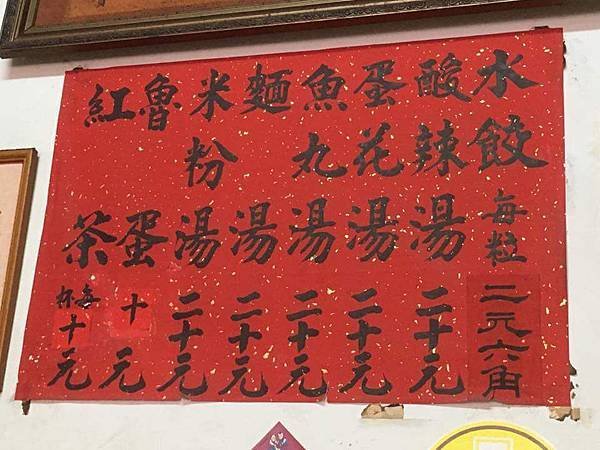 水餃每粒二元六角
酸辣湯二十元
蛋花湯二十元
魚丸湯二十元
麵湯二十元
米粉湯二十元
魯蛋十元
紅茶每杯十元